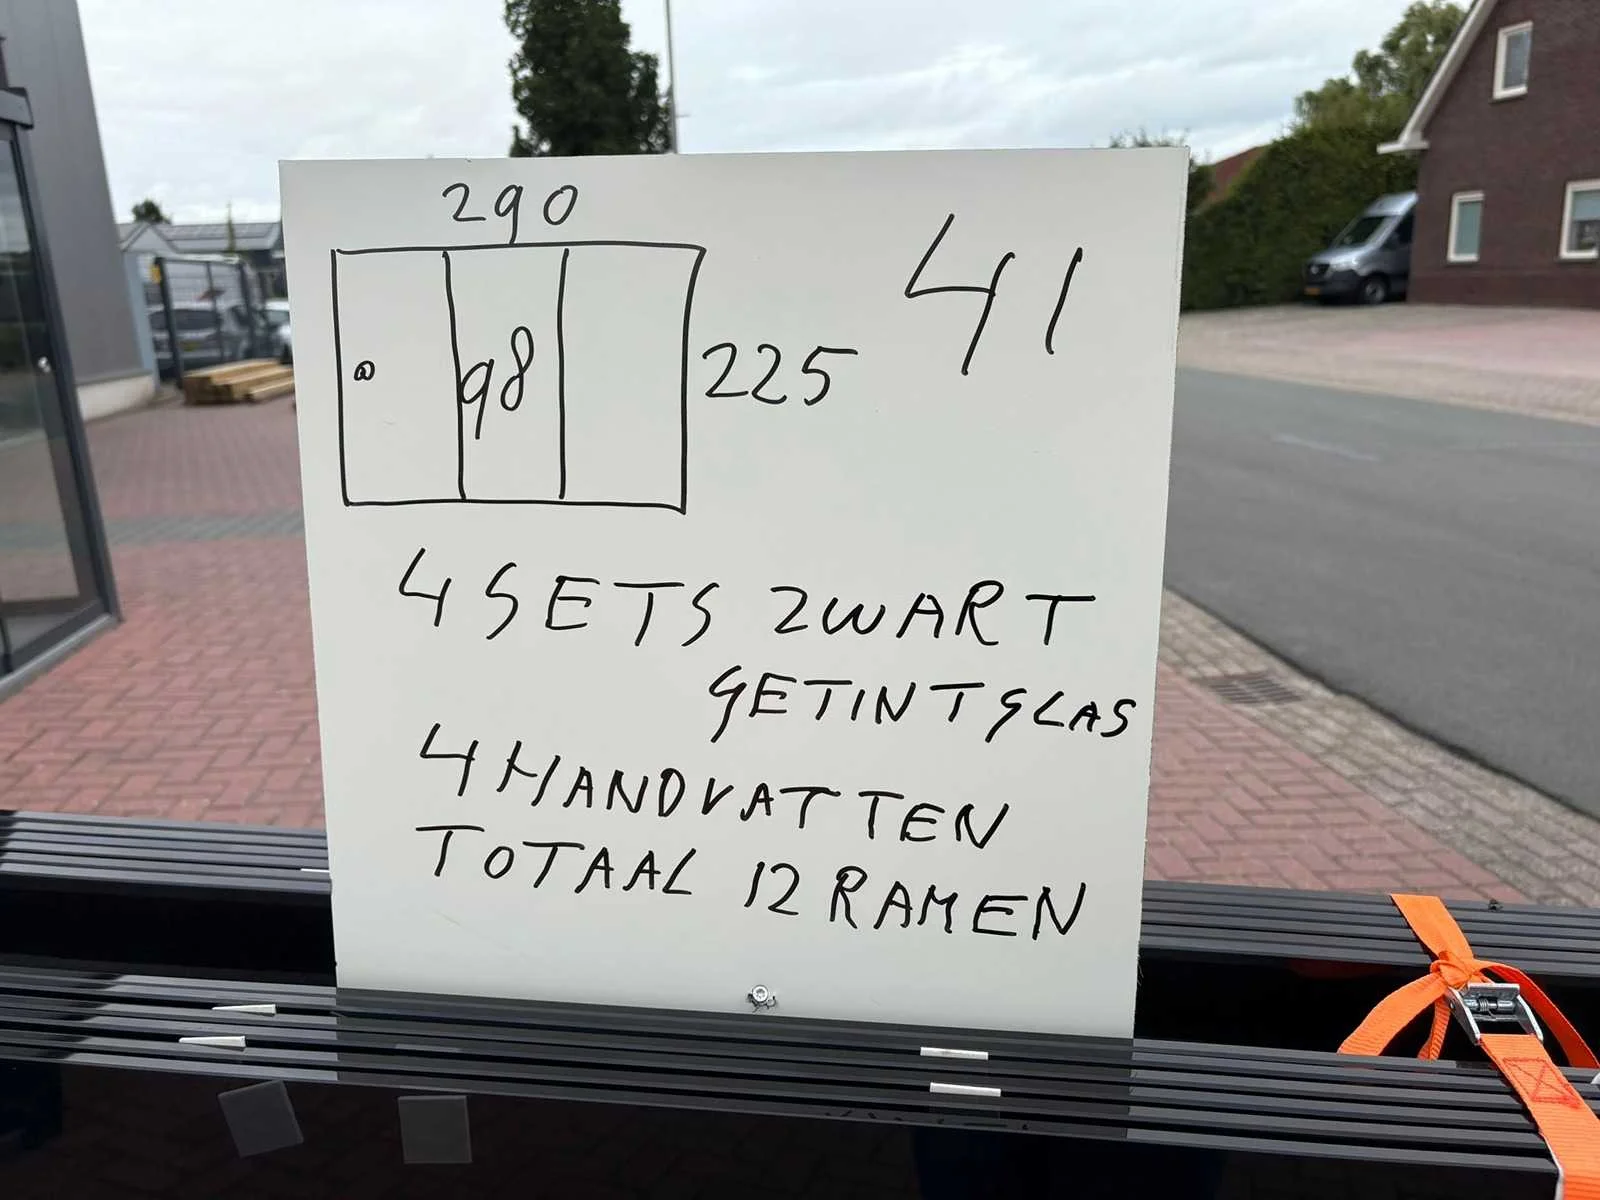 290
41
98
225
4 SETS ZWART
GETINT GLAS
4 HANDVATTEN
TOTAAL 12 RAMEN